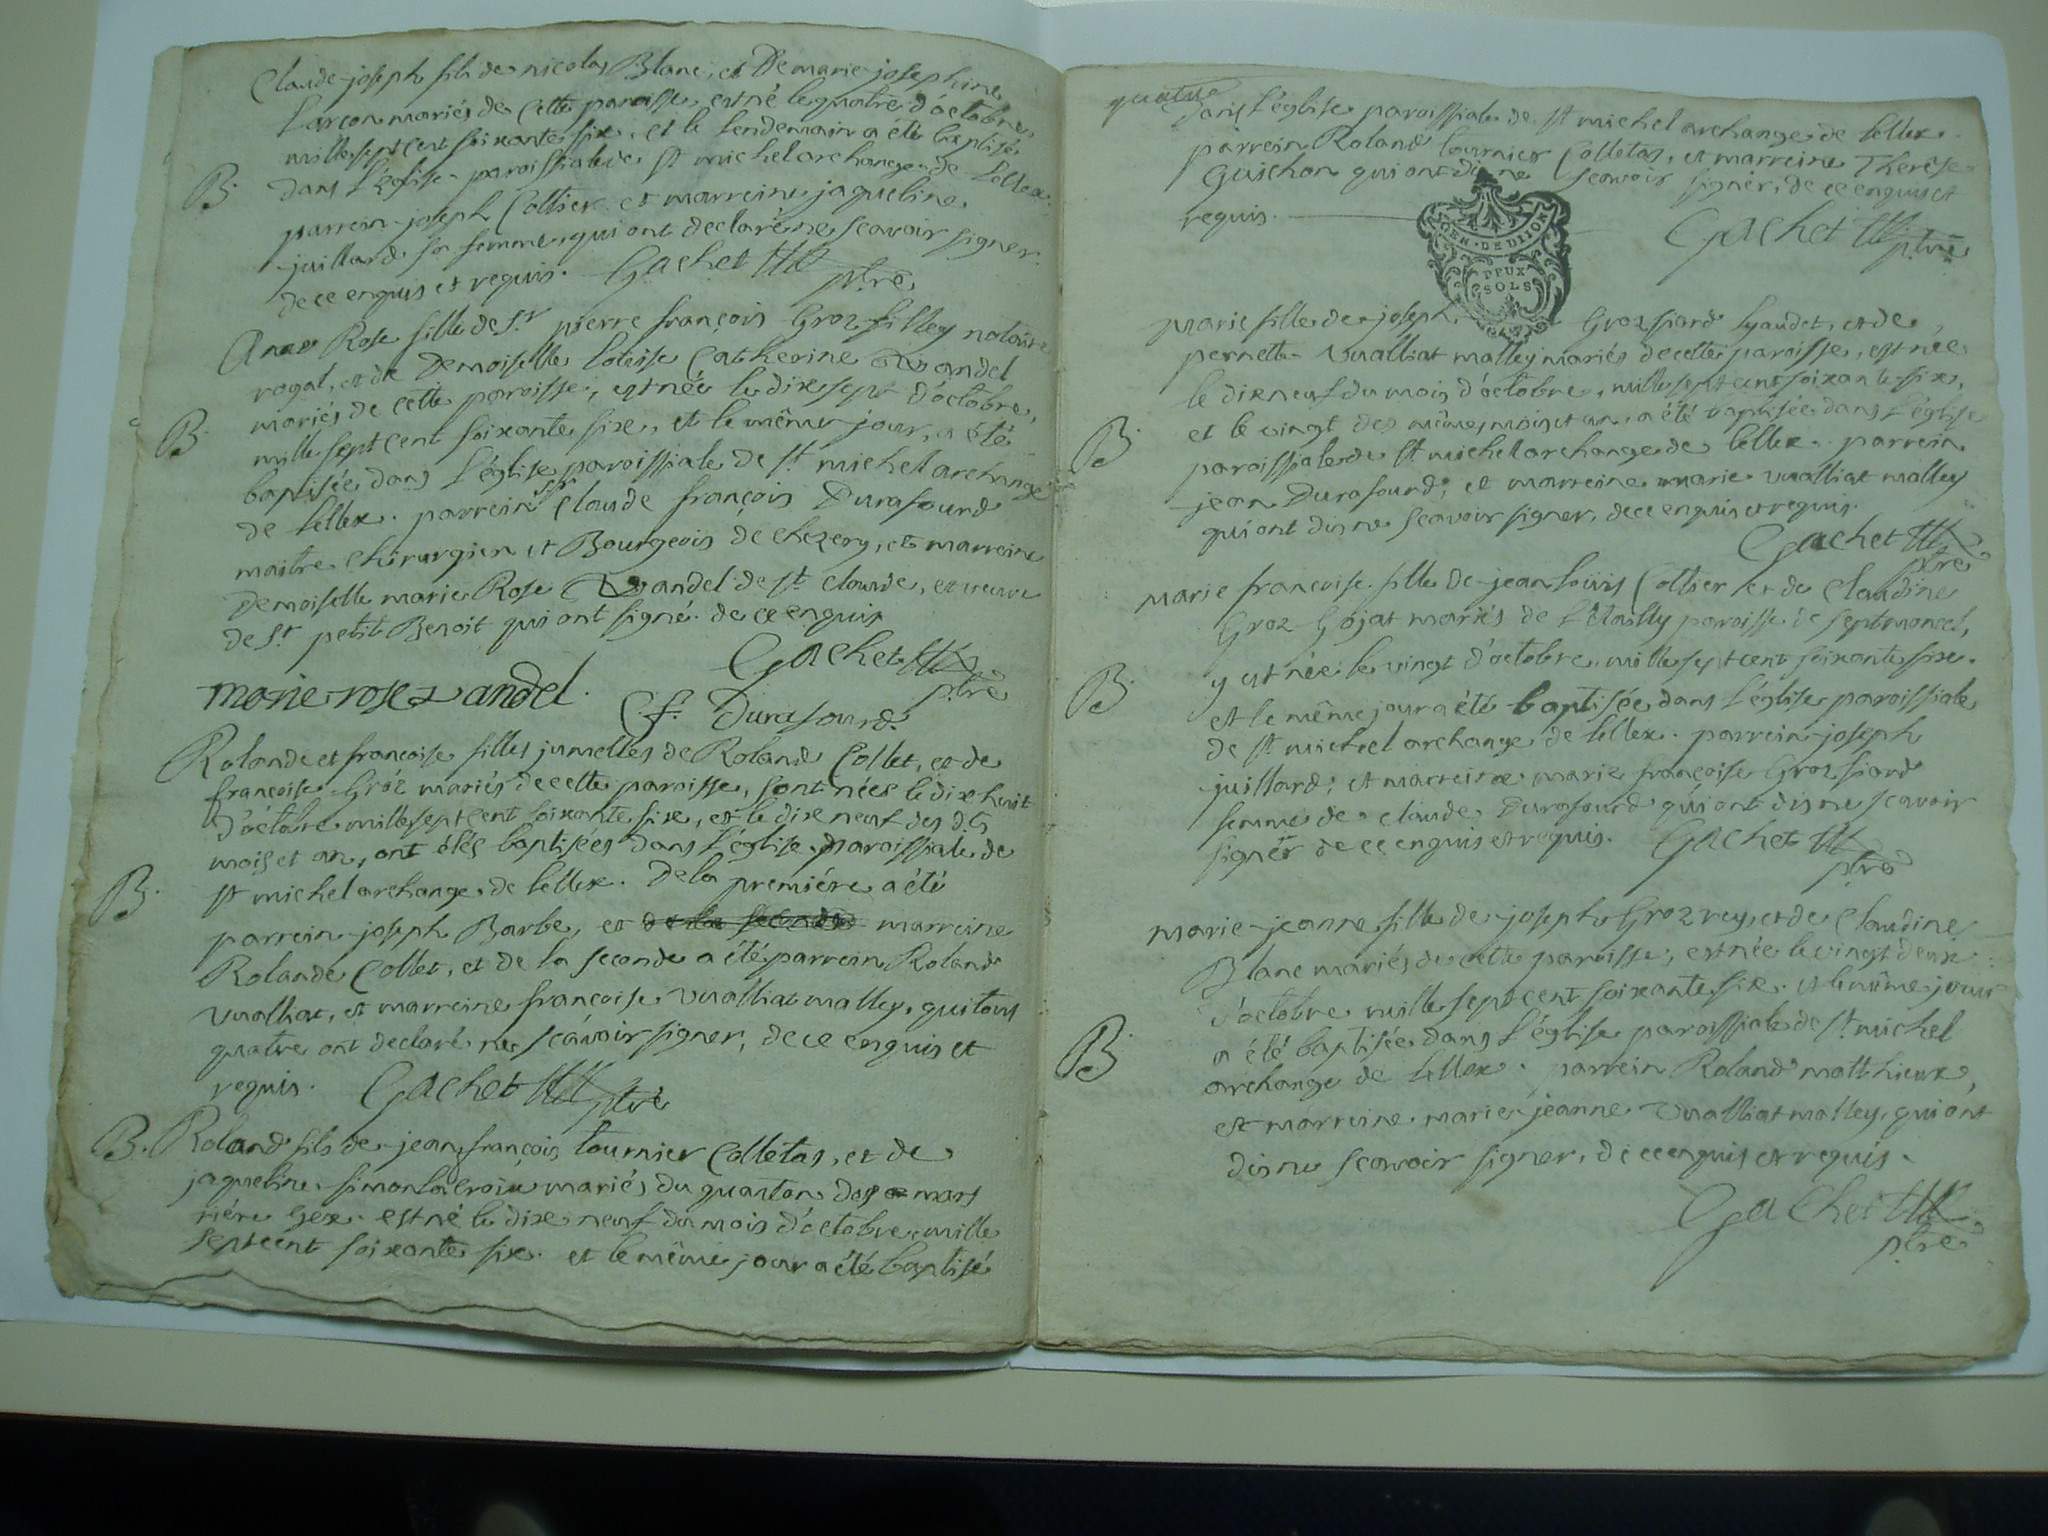 Claude joseph fils de nicolas Blanc, et De marie josephine
Larçon mariés de cette paroisse, est né le quatre d'octobre
mille sept cent soixante six, et le lendemain a été baptisé
B. dans L'église paroissiale de st michel archange de Lellex.
parrein joseph Coltier et marreine jaqueline
juillard sa femme, qui ont declaré ne scavoir signer.
de ce enquis et requis. Gachet ptre
Anne Rose fille de Sr pierre françois Groz filley notaire
royal, et de Demoiselle Loüise Catherine Vandel
mariés de cette paroisse, est née le dix sept d'octobre,
B. mille sept cent soixante six, et le même jour, a été
baptisée dans L'église paroissiale de st michel archange
de Lellex. parrein Sr Claude françois Durafourd
maitre chirurgien et Bourgeois de chezery, et marreine
Demoiselle marie Rose Vandel de st Claude, et veuve
de Sr petit Benoit qui ont signé. de ce enquis
Gachet ptre
marie rose vandel. C. f. Durafourd
Rolande et francoise filles jumelles de Roland Collet, et de
francoise Gróz mariés de cette paroisse, sont nées le dix huit
d'octobre mille sept cent soixante six, et le dix neuf des dts
mois et an, ont étés baptisées dans L'église paroissiale de
B. st michel archange de lellex. De la premiére a été
parrein joseph Barbe, et de la seconde marreine
Rolande Collet, et de la seconde a été parrein Roland
Vualliat, et marreine francoise Vualliat malley, qui tous
quatre ont declaré ne scavoir signer, de ce enquis et
requis. Gachet ptre
B. Roland fils de jean françois tournier Colletas, et de
jaqueline simon lacroix mariés du quanton des mars
riére Gex. est né le dix neuf du mois d'octobre mille
sept cent soixante six. et le même jour a été baptisé
quatre
dans L'église paroissiale de st michel archange de lellex.
parrein Roland tournier Colletas, et marreine Therese
Guichon qui ont dis ne scavoir signer, de ce enquis et
requis.
GEN. DE DIJON
DEUX
SOLS
Gachet ptre
Marie fille de joseph Grozfiard Lyaudet, et de
pernette Vualliat malley mariés de cette paroisse, est née
le dix neuf du mois d'octobre, mille sept cent soixante six,
et le vingt des mêmes mois et an, a été baptisée dans L'église
B. paroissiale de st michel archange de lellex. parrein
jean Durafourd, et marreine marie vualliat malley
qui ont dis ne scavoir signer, de ce enquis et requis.
Gachet ptre
Marie francoise fille de jean loüis Coltier et de Claudine
Groz Gojat mariés de L'Etailly paroisse de septmoncel,
B. y est née le vingt d'octobre mille sept cent soixante six.
et le même jour a été baptisée dans L'église paroissiale
de st michel archange de lellex. parrein joseph
juillard, et marreine marie francoise Groz fiard
femme de claude Durafourd qui ont dis ne scavoir
signer de ce enquis et requis. Gachet ptre
Marie jeanne fille de joseph Groz rey, et de Claudine
Blanc mariés de cette paroisse, est née le vingt deux
d'octobre mille sept cent soixante six. et le même jour
B. a été baptisée dans L'église paroissiale de st michel
archange de Lellex. parrein Roland matthieux,
et marreine marie jeanne Vualliat malley, qui ont
dis ne scavoir signer, de ce enquis et requis.
Gachet
ptre